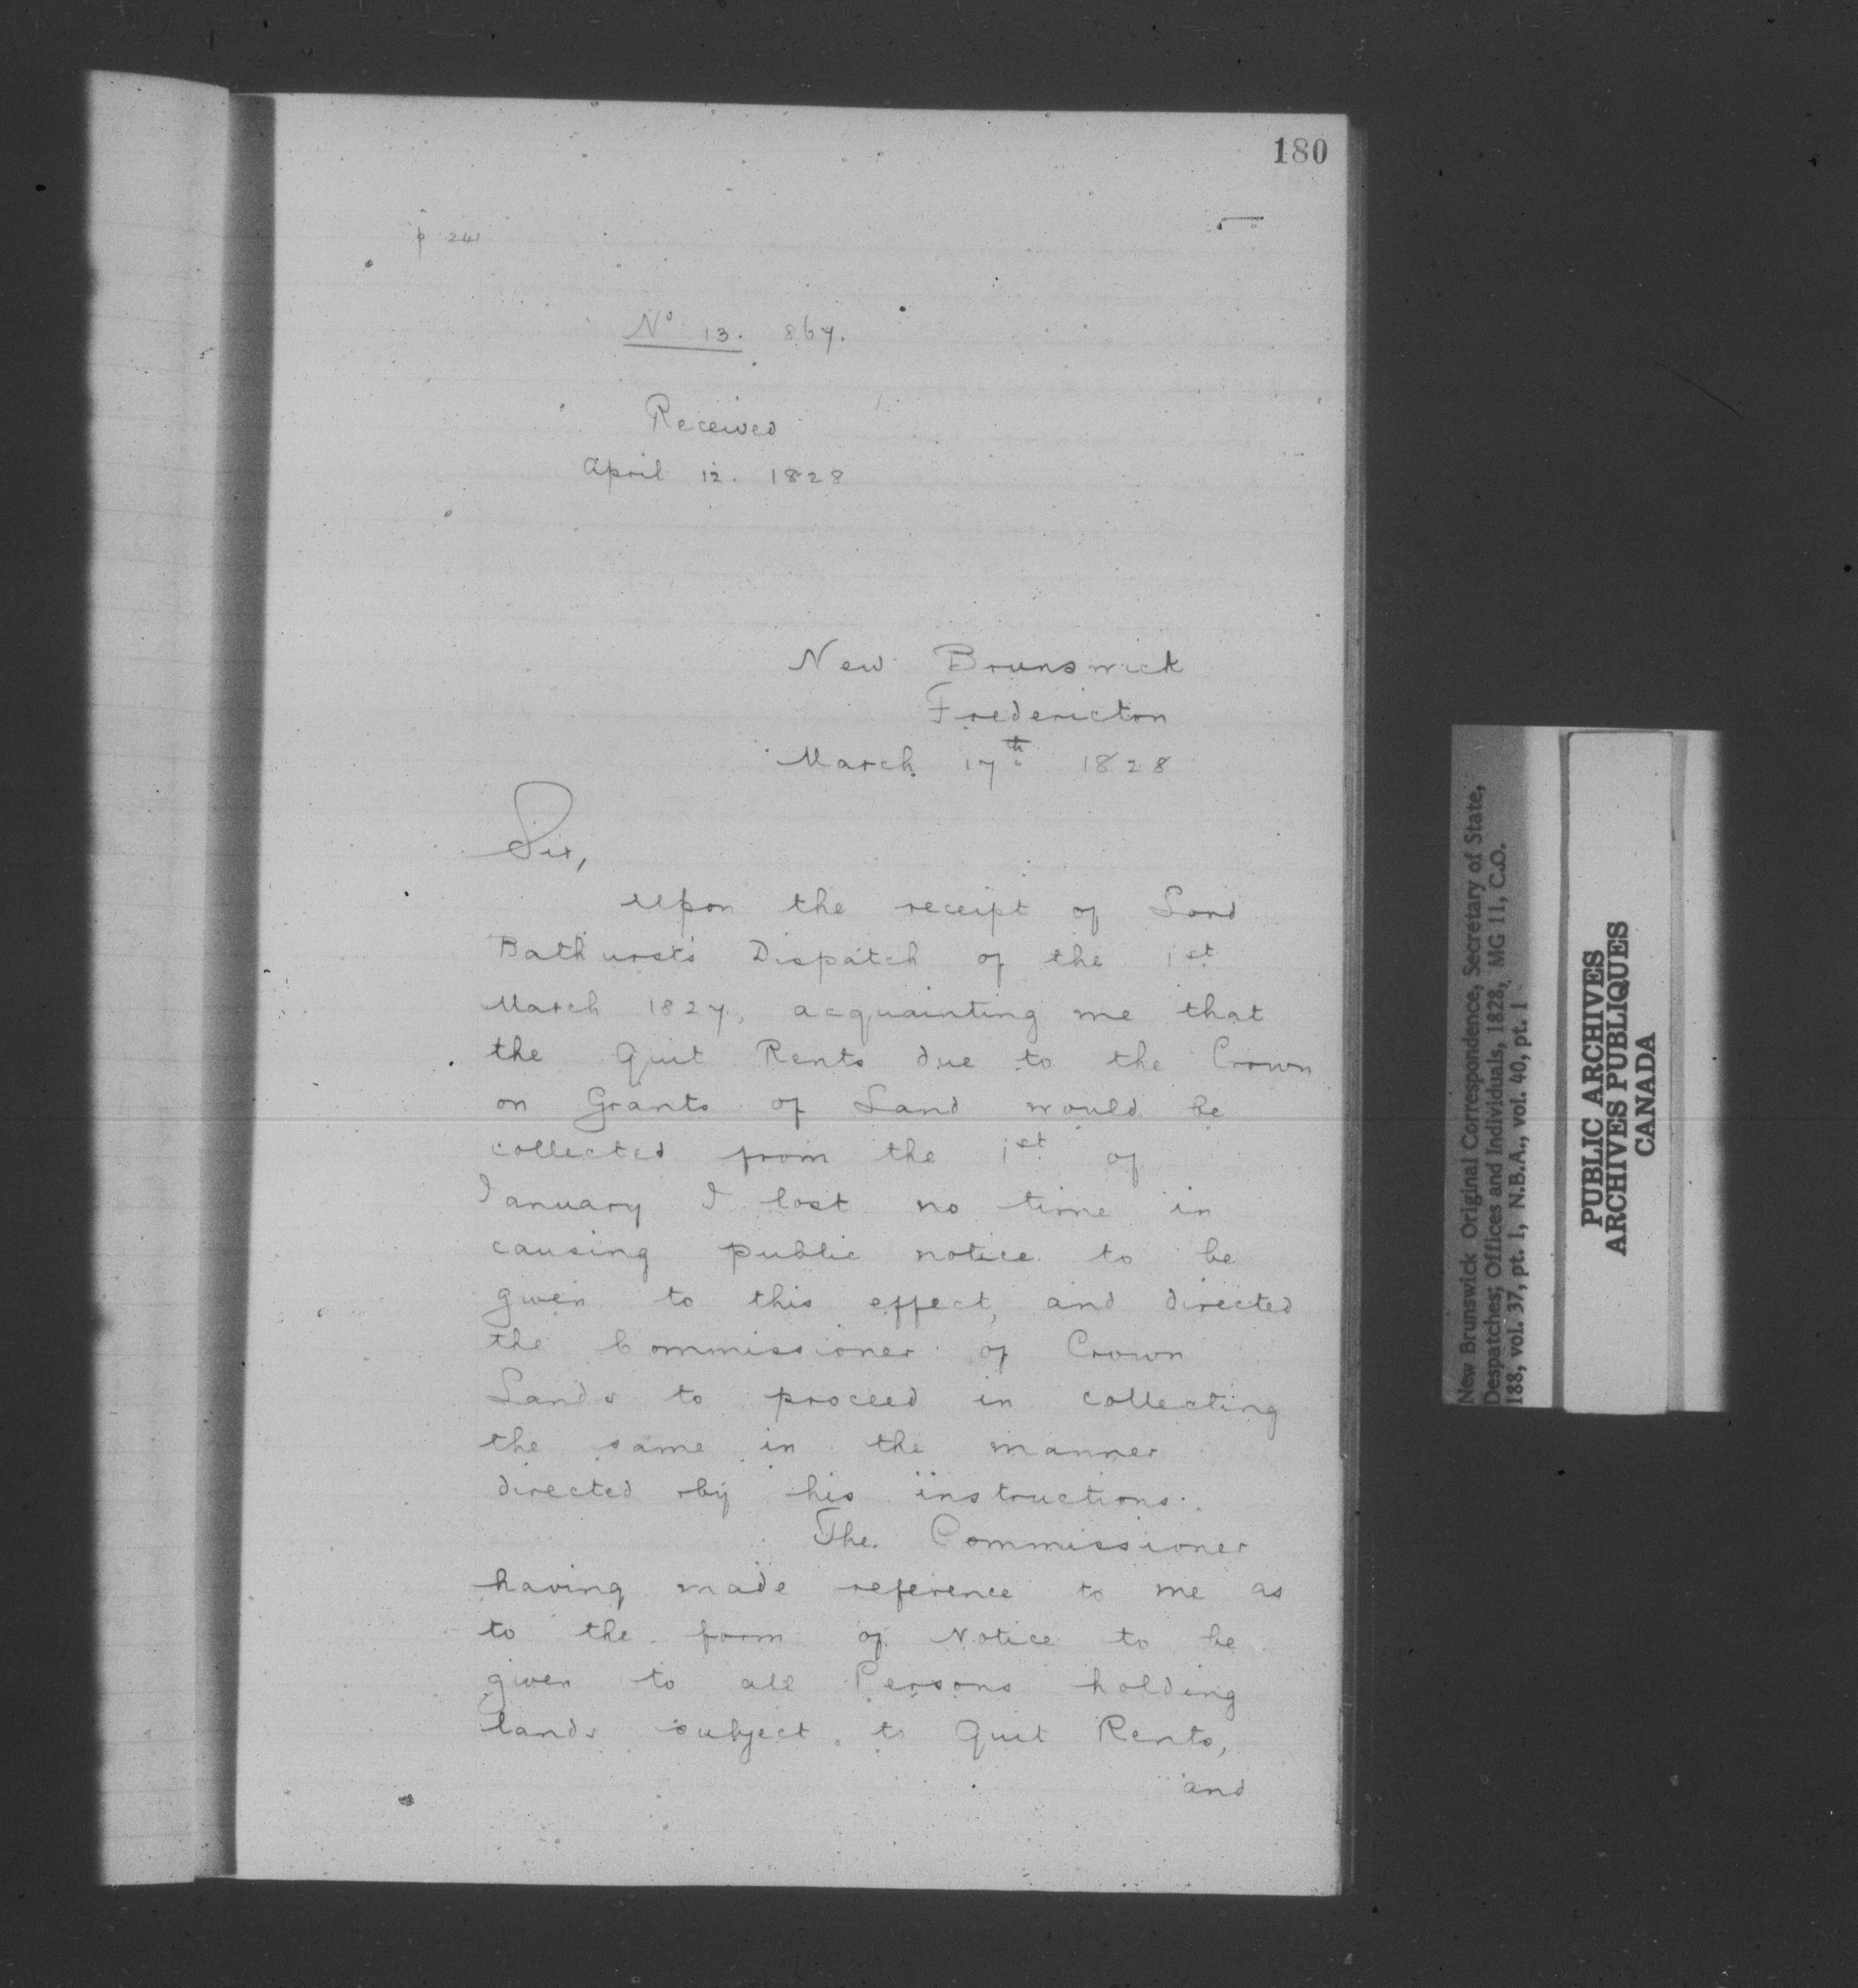 180
p 241
No 13. 867.
Received
April 12. 1828
New Brunswick
Fredericton
March 17th 1828
Sir,
Upon the receipt of Lord
Bathurst's Dispatch of the 1st
March 1827, acquainting me that
the Quit Rents due to the Crown
on Grants of Land would be
collected from the 1st of
January I lost no time in
causing public notice to be
given to this effect, and directed
the Commissioner of Crown
Lands to proceed in collecting
the same in the manner
directed by his instructions.
The Commissioner
having made reference to me as
to the form of Notice to be
given to all Persons holding
lands subject to Quit Rents,
and
New Brunswick Original Correspondence, Secretary of State,
Despatches; Offices and Individuals, 1828, MG 11, C.O.
188, vol. 37, pt. 1, N.B.A., vol. 40, pt. 1
PUBLIC ARCHIVES
ARCHIVES PUBLIQUES
CANADA